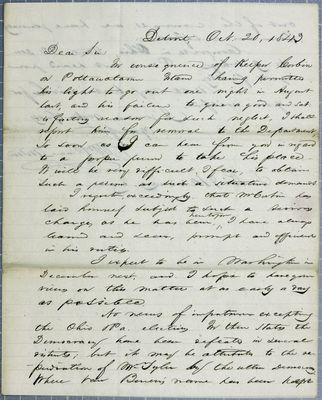 Detroit Oct. 20, 1843
Dear Sir
In consequence of Keeper
on Pottawatamie Island having permitted
his light to go out one night in August
last, and his failure to give a good and sat-
isfactory reason for such neglect, I shall
report him for removal to the Department,
so soon as I can hear from you in regard
to a proper person to take his place
It will be very difficult, I fear, to obtain
such a person as such a situation demands
I regret exceedingly that Mr
laid himself subject to such a serious
charge, as he has been, I have always
learned and seen, prompt and efficient
in his duties.
I expect to be in Washington in
December next, and I hope to have your
views on this matter at as early a day
as possible.
No news of importance excepting
the Ohio & Pa. election. In these States the
Democracy have been defeated in several
districts; but it may be attributed to the re-
pudiation of Mr Tyler by the Democracy
Where Van Buren's name has been kept